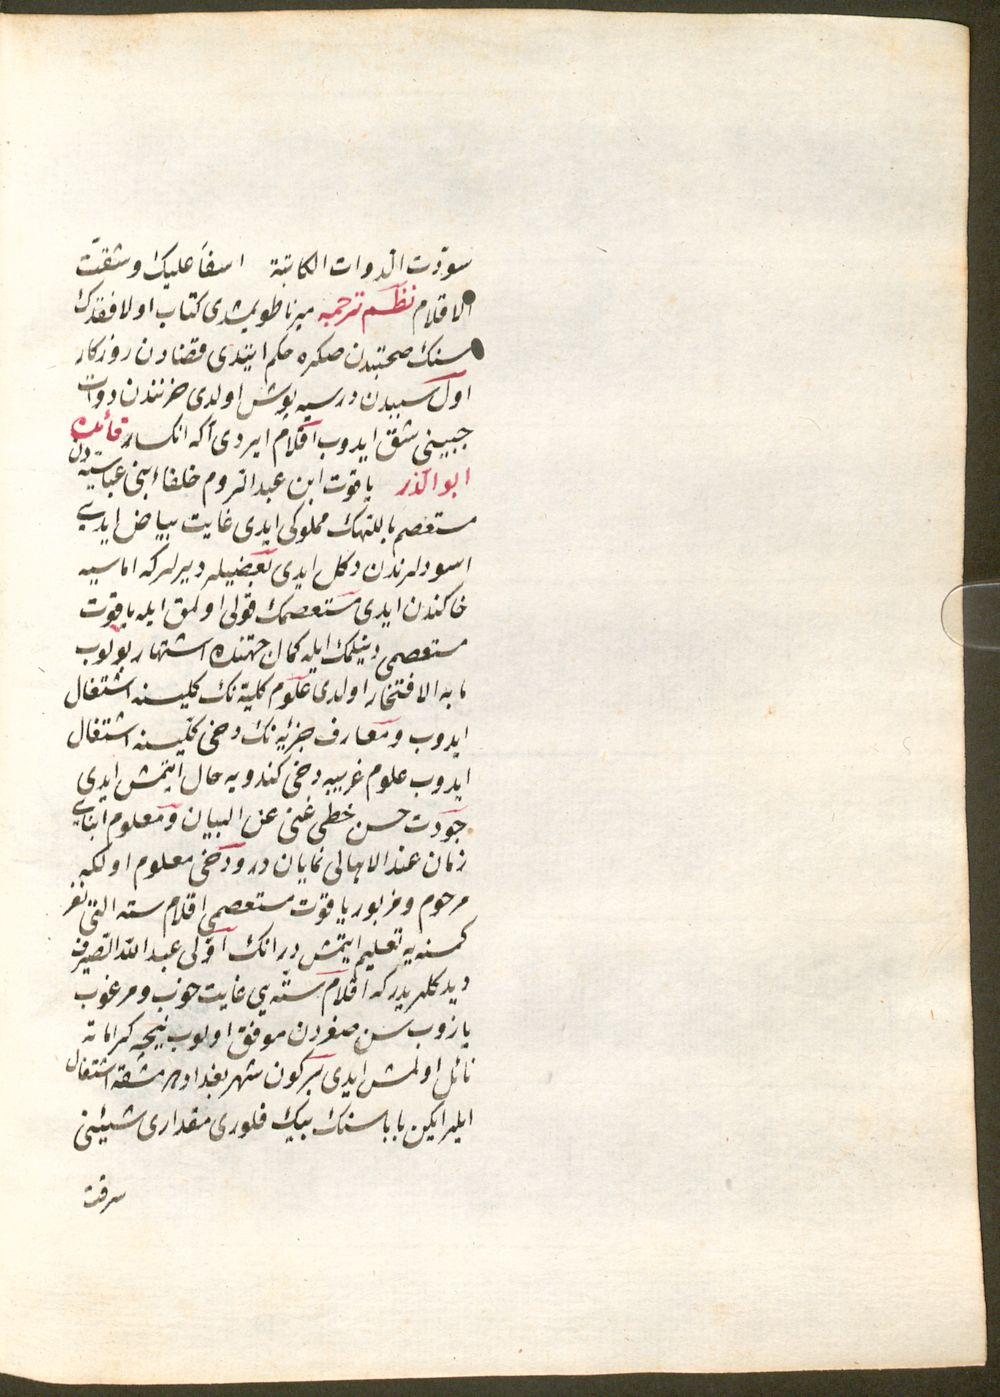 سودت الدوات الكآبة اسفا عليك وشقت
الاقلام نظم ترجمه ميرنا طويمشدى كتاب اولا فقدك
سنك صحبتيدن صكره حكم ايتدى قضادن روزكار
اول سببدن درسيه پوش اولدى حزنندن دوات
جبينى شق ايدوب اقلام ايردى اكه انكسار فائده
ابو الدر ياقوت ابن عبد الروم خلفاء بنى عباسيه دن
مستعصم باللهك مملوكى ايدى غايت بياض ايدى
اسودلرندن دكل ايدى بعضيلر ديرلركه اماسيه
خاكندن ايدى مستعصمك قولى اولمق ايله ياقوت
مستعصمى دينلمك ايله كمال جهتنده اشتهار بولوب
ما به الافتخار اولدى علوم كليه نك كليسنه اشتغال
ايدوب ومعارف جزئيه نك دخى كليسنه اشتغال
ايدوب علوم غريبه دخى كندويه حال ايتمش ايدى
جودت حسن خطى غنى عن البيان ومعلوم ابناى
زمان عند الاهالى نمايان درو دخى معلوم اولكه
مرحوم ومزبور ياقوت مستعصمى اقلام سته التى نفر
كمسنه يه تعليم ايتمش در انك اولى عبد الله الصيرفى
ديدكلريدركه اقلام سته يى غايت خوب ومرغوب
يازوب سن صغردن موفق اولوب نيجه كراماته
نائل اولمش ايدى بركون شهر بغداده مشقه اشتغال
ايلر ايكن باباسنك بيك فلورى مقدارى شيئنى
سرقت